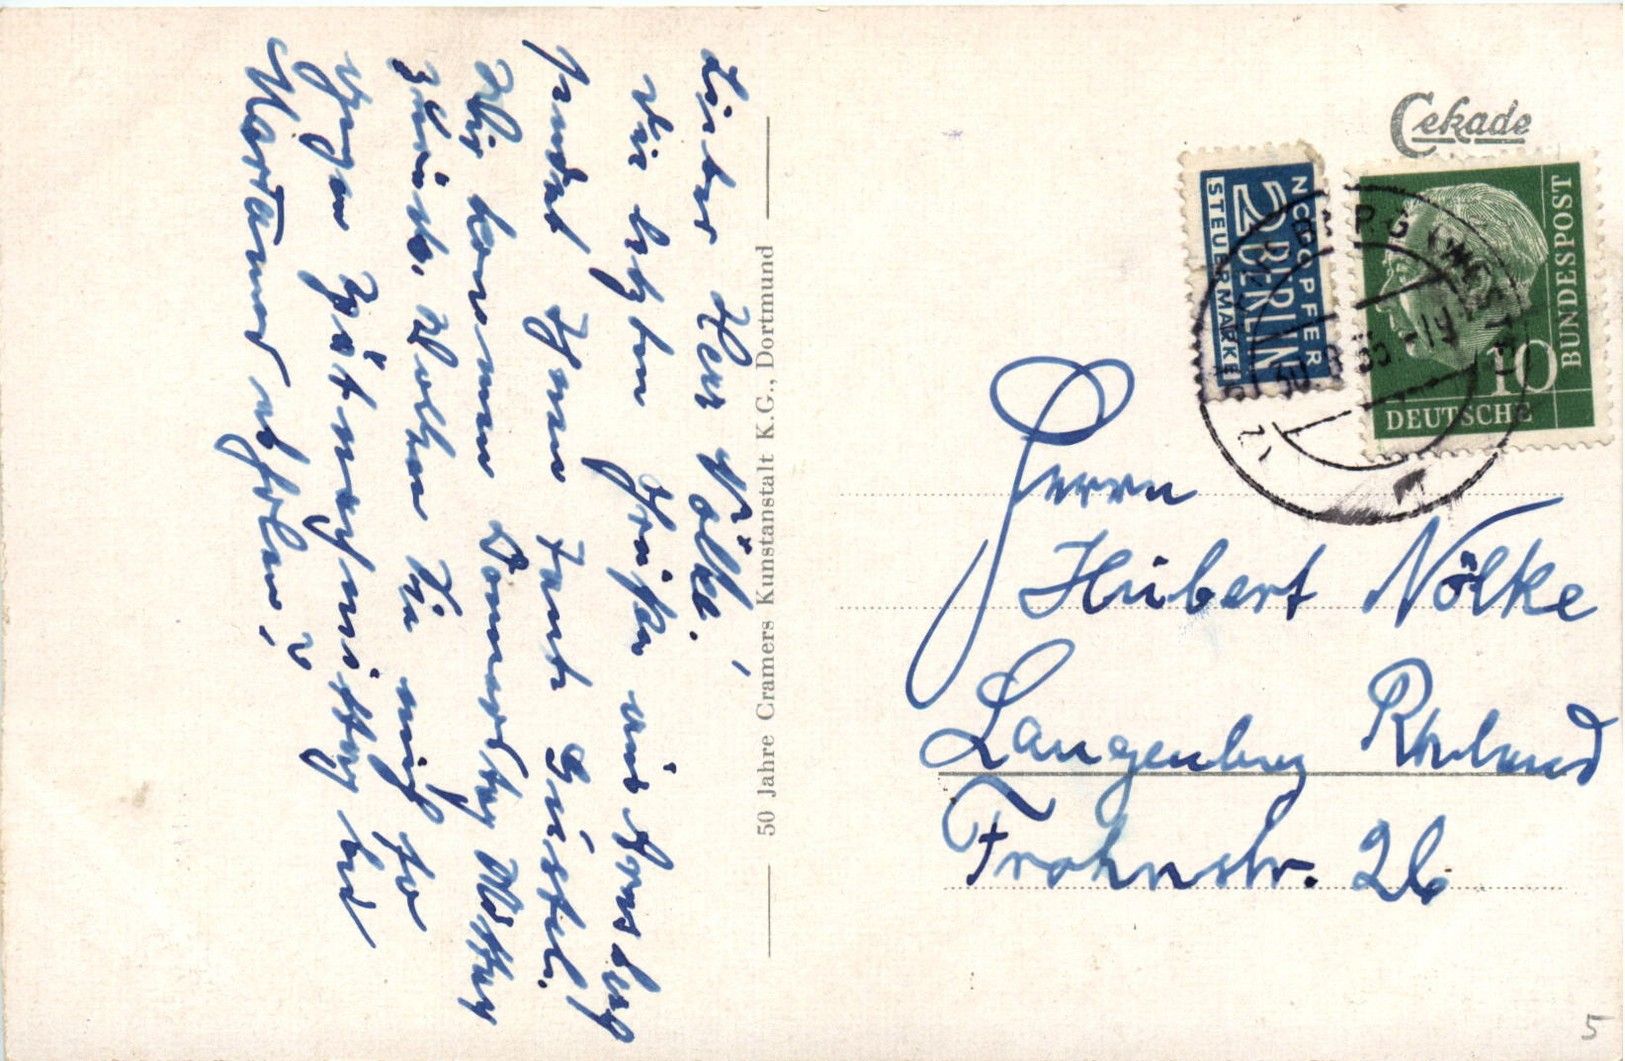 Lieber Herr Nölke!
Die letzten Grüße aus Arnsberg
sendet Ihnen Tante Gustel.
Wir kommen Donnerstag Mittag
zurück. Wollen Sie mich so
gegen Spätnachmittag bei
Hortamer abholen?
50 Jahre Cramers Kunstanstalt K.G., Dortmund
Cekade
NOTOPFER
2 BERLIN
STEUERMARKE
DEUTSCHE
BUNDESPOST
10
Herrn
Hubert Nölke
Langenberg Rheinland
Frohnstr. 26
5